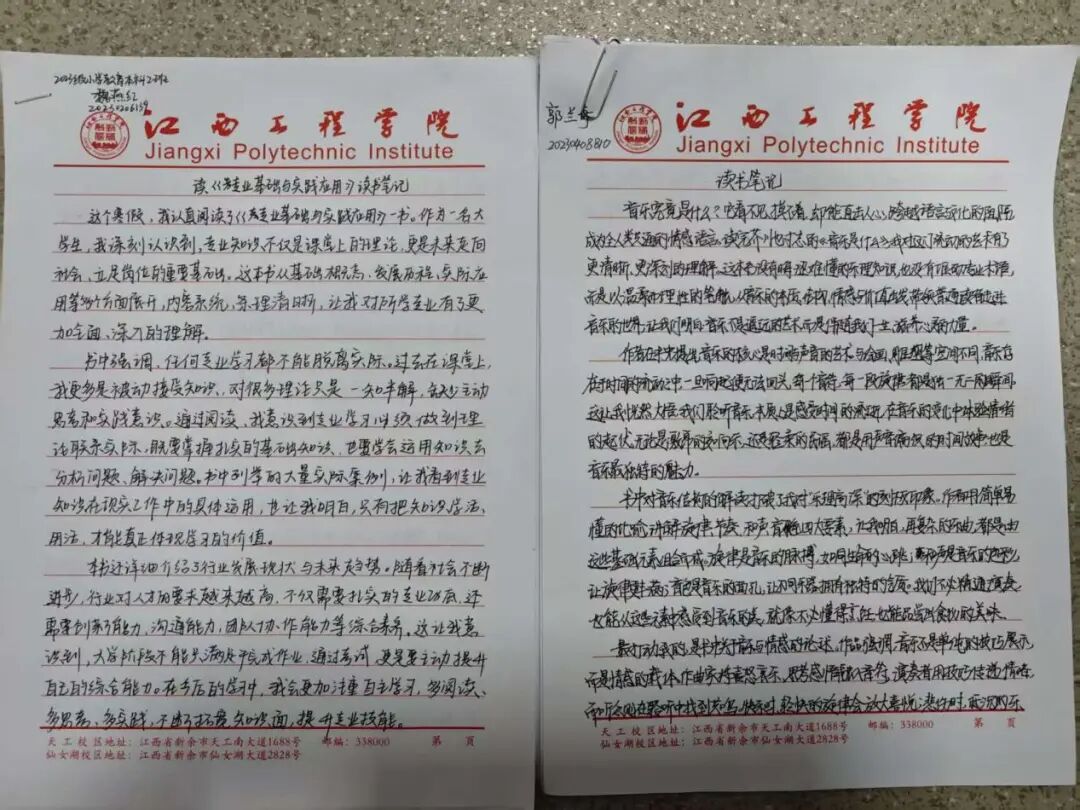 2023级小学教育本科2班
魏燕红
江西工程学院
Jiangxi Polytechnic Institute
读《专业基础与实践应用》读书笔记
这个寒假，我认真阅读了《专业基础与实践应用》一书。作为一名大
学生，我深刻认识到，专业知识不仅是课堂上的理论，更是未来走向
社会、立足岗位的重要基础。这本书从基础概念、发展历程、实际应
用等多个方面展开，内容系统，条理清晰，让我对所学专业有了更
加全面、深入的理解。
书中强调，任何专业学习都不能脱离实际。过去在课堂上，
我更多是被动接受知识，对很多理论只是一知半解，缺少主动
思考和实践意识。通过阅读，我意识到专业学习必须做到理
论联系实际，既要掌握扎实的基础知识，也要学会运用知识去
分析问题、解决问题。书中列举的大量实际案例，让我看到专业
知识在现实工作中的具体运用，也让我明白，只有把知识学活、
用活，才能真正体现学习的价值。
本书还详细介绍了行业发展现状与未来趋势。随着社会不断
进步，行业对人才的要求越来越高，不仅需要扎实的专业功底，还
需要创新能力、沟通能力、团队协作能力等综合素养。这让我意
识到，大学阶段不能只满足于完成作业，通过考试，更是要主动提升
自己的综合能力。在今后的学习中，我会更加注重自主学习，多阅读、
多思考、多实践，不断拓宽知识面，提升专业技能。
天工校区地址：江西省新余市天工南大道1688号 邮编：338000 第 页
仙女湖校区地址：江西省新余市仙女湖大道2828号
郭兰
20230408810
江西工程学院
Jiangxi Polytechnic Institute
读书笔记
音乐究竟是什么？它看不见、摸不着，却能直击人心，跨越语言文化的阻隔，
成为全人类共通的情感语言。读完《音乐是什么》我对这门流动的艺术有了
更清晰、更深刻的理解。这本书没有晦涩难懂的乐理知识，也没有堆砌专业术语，
而是以温柔而理性的笔触，从音乐的本质、结构、情感与价值出发，带领普通读者走进
音乐的世界，让我们明白音乐不是遥远的艺术，而是伴随我们一生、滋养心灵的力量。
作者在书中提出，音乐的核心是时间与声音的艺术，与绘画、雕塑等空间不同，音乐存
在于时间的流动之中，一旦响起便无法回头，每个音符、每一段旋律都是独一无二的瞬间。
这让我恍然大悟：我们聆听音乐，本质上是感受时间的流动，在音乐的变化中体验情绪
的起伏。无论是激昂的交响乐，还是轻柔的乐曲，都是用声音编织的时间故事，也是
音乐最独特的魅力。
书中对音乐结构的解读，打破了我对“乐理高深”的刻板印象。作者用简单易
懂的比喻，讲解旋律、节奏、和声、音色四大要素，让我明白，再复杂的乐曲，都是由
这些基础元素组合而成。旋律是音乐的脉搏，如同生命的心跳；和声是音乐的色彩，
让旋律丰满；音色是音乐的面孔，让不同乐器拥有独特的气质。我们不必精通演奏，
也能从这些元素中感受到音乐的美，就像不必懂得烹饪，也能品尝到食物的美味。
最打动我的，是书中关于音乐与情感的论述。作者强调，音乐不是单纯的技巧展示，
而是情感的载体。作曲家将喜怒哀乐、思考感悟融入音符，演奏者用技巧传递情绪，
而听众则在聆听中找到共鸣。快乐时，轻快的旋律会放大喜悦；悲伤时，
天工校区地址：江西省新余市天工南大道1688号 邮编：338000 第 页
仙女湖校区地址：江西省新余市仙女湖大道2828号